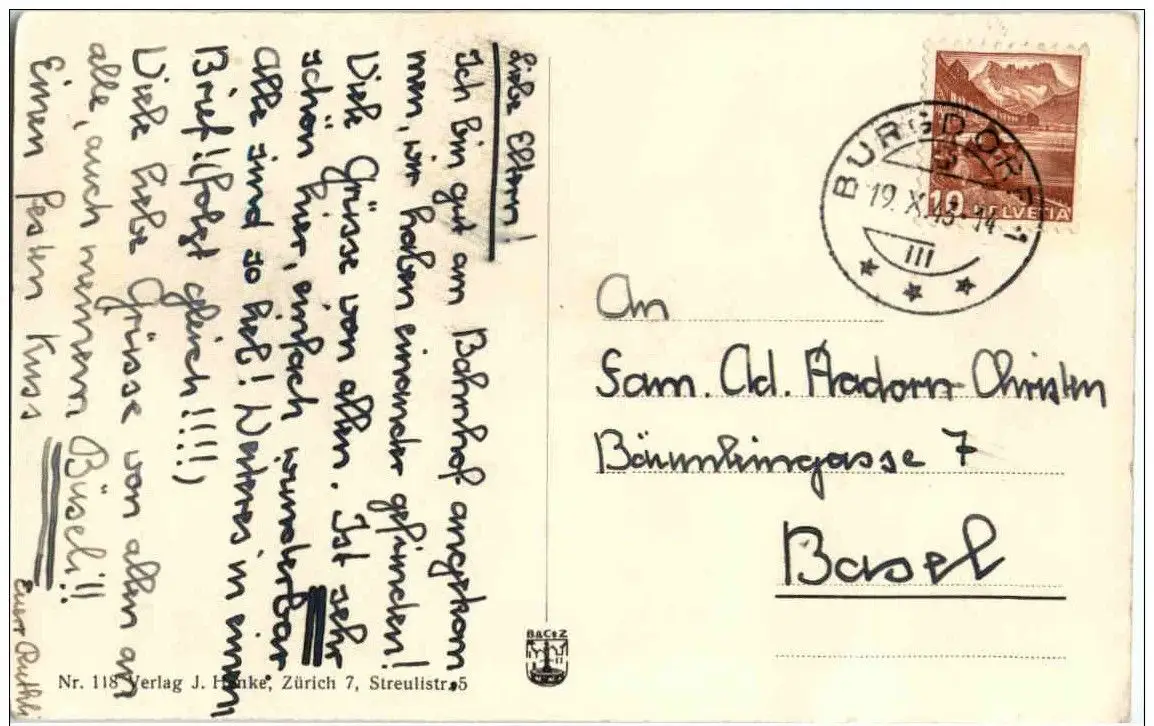 Liebe Eltern!
Ich bin gut am Bahnhof angekom
men, wir haben einander gefunden!
Viele Grüsse von allen. Ist sehr
schön hier, einfach wunderbar
alle sind so lieb! Weiteres in einem
Brief! (folgt gleich!!!!)
Viele liebe Grüsse von allen an
alle, auch meinem Büseli!!
Einen festen Kuss
Euer Ruthli
BURGDORF 1
19. X. 43-14
III
10 HELVETIA
An
Fam. Ad. Aadorn-Christen
Bäumleingasse 7
Basel
B&C° Z
Nr. 118 Verlag J. Hanke, Zürich 7, Streulistr. 5